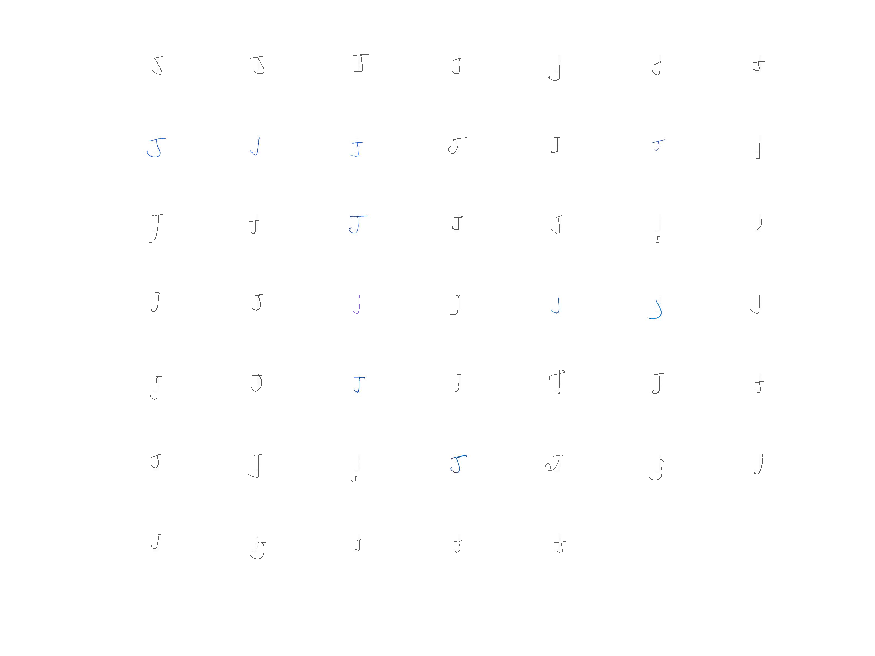 J J J J J J J
J J J J J J J
J J J J J J J
J J J J J J J
J J J J J J J
J J J J J J J
J J J J J